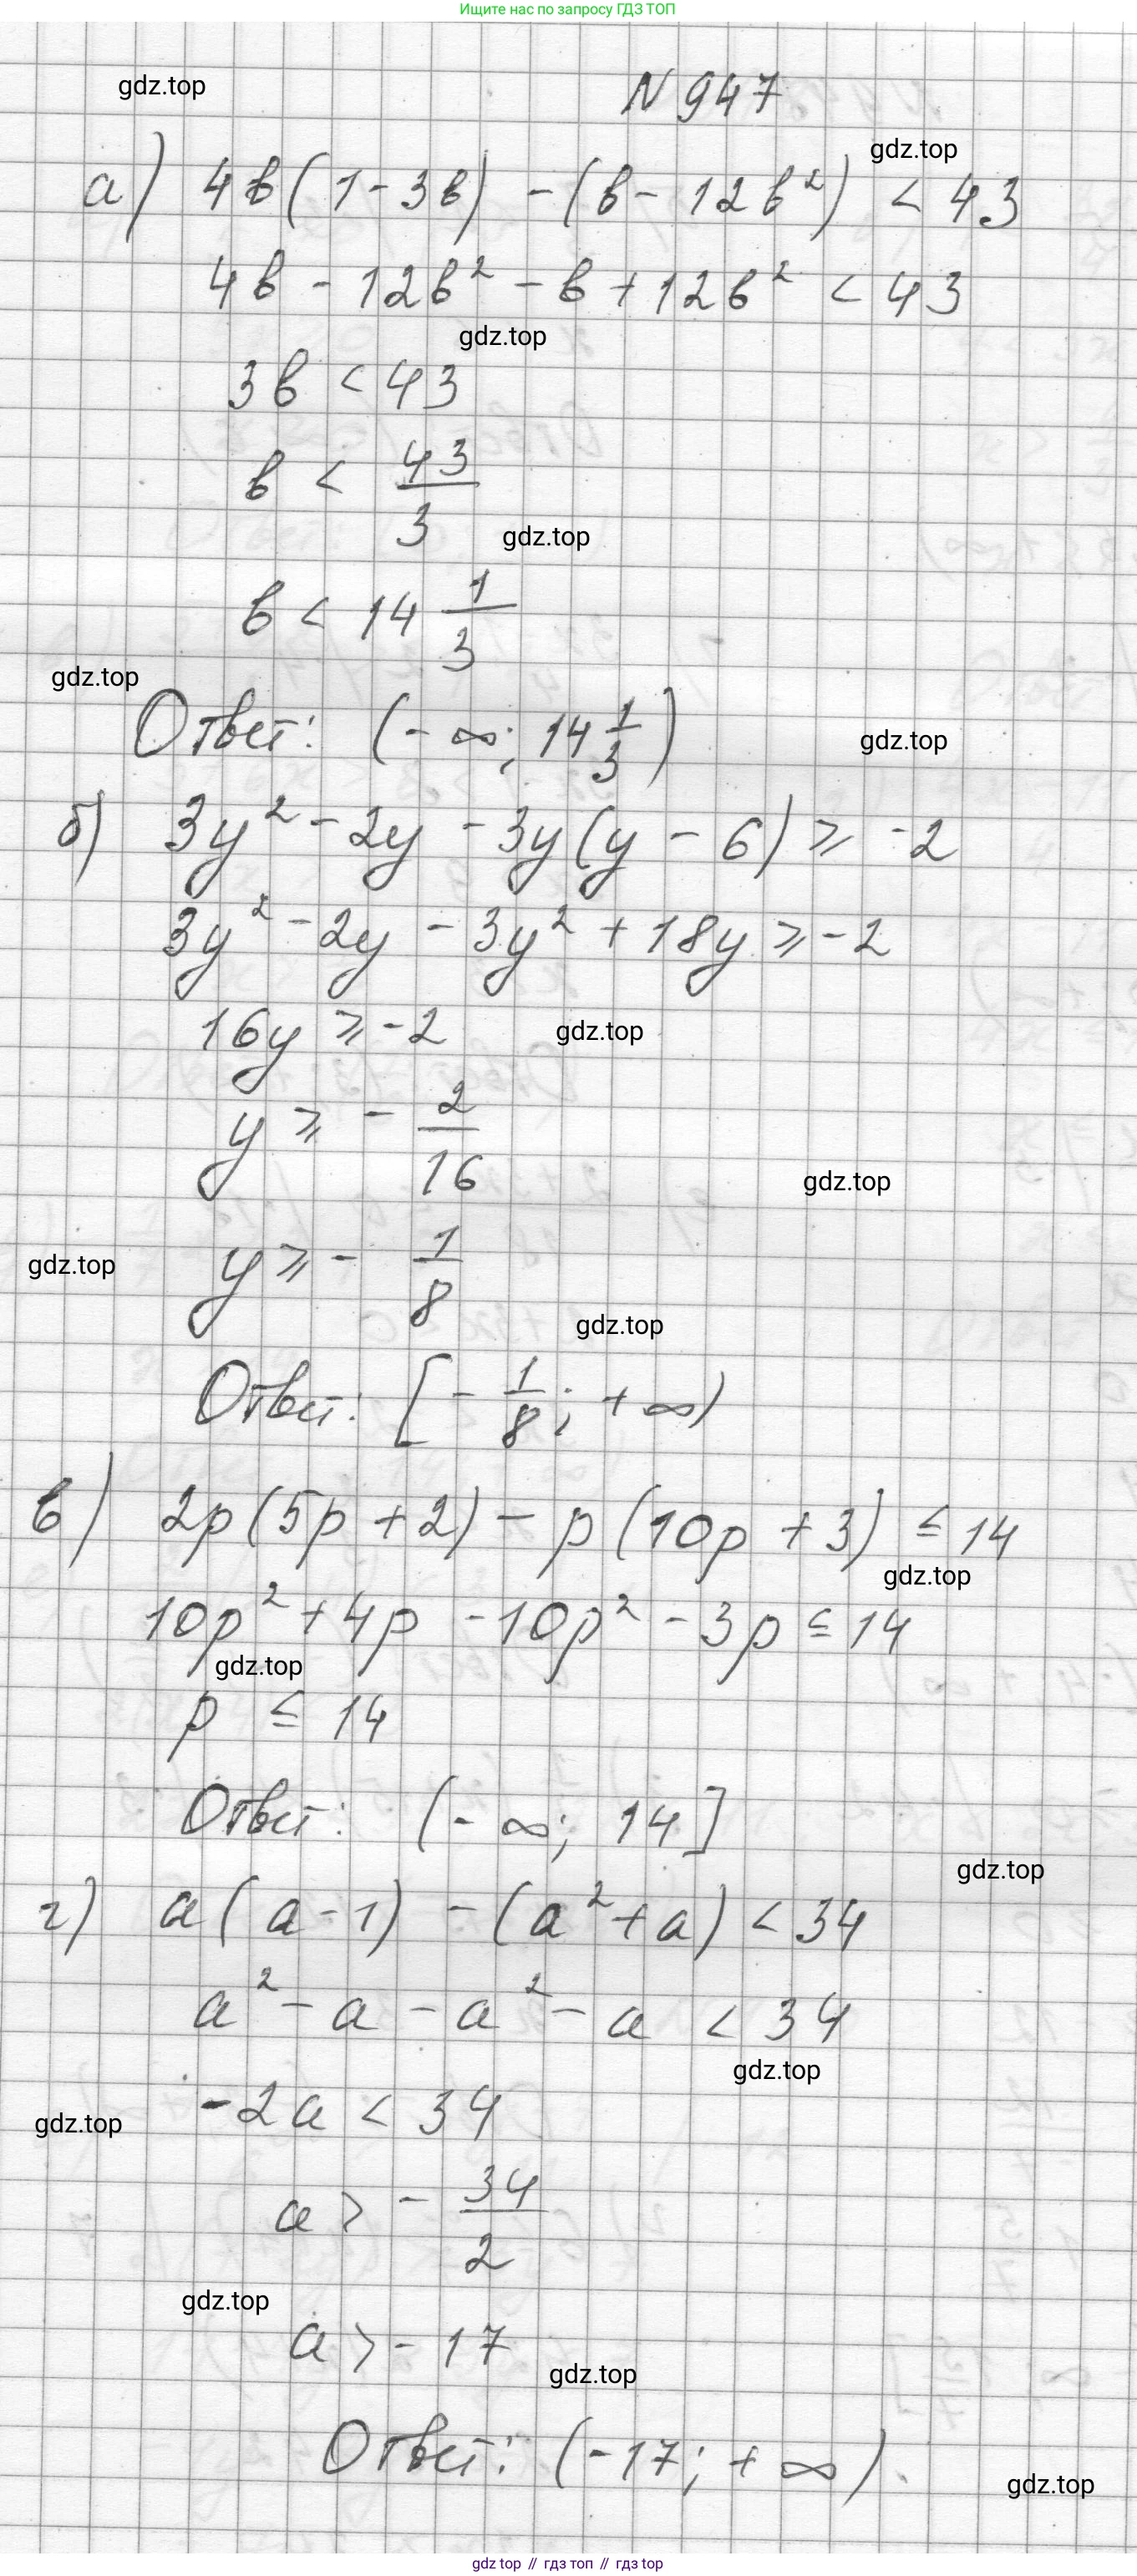 Ищите нас по запросу ГДЗ ТОП
gdz.top
N 947
gdz.top
а) 4в(1 - 3в) - (в - 12в²) < 43
4в - 12в² - в + 12в² < 43
gdz.top
3в < 43
в < 43/3
gdz.top
в < 14 1/3
gdz.top
Ответ: (- ∞; 14 1/3)
gdz.top
б) 3y² - 2y - 3y(y - 6) ⩾ -2
3y² - 2y - 3y² + 18y ⩾ -2
16y ⩾ -2
gdz.top
y ⩾ - 2/16
gdz.top
y ⩾ - 1/8
gdz.top
gdz.top
Ответ: [- 1/8; + ∞)
в) 2p(5p + 2) - p(10p + 3) ≤ 14
gdz.top
10p² + 4p - 10p² - 3p ≤ 14
gdz.top
p ≤ 14
Ответ: (- ∞; 14]
gdz.top
г) a(a - 1) - (a² + a) < 34
a² - a - a² - a < 34
gdz.top
-2a < 34
gdz.top
a > - 34/2
gdz.top
a > - 17
gdz.top
Ответ: (-17; + ∞).
gdz.top
gdz top // гдз топ // гдз top